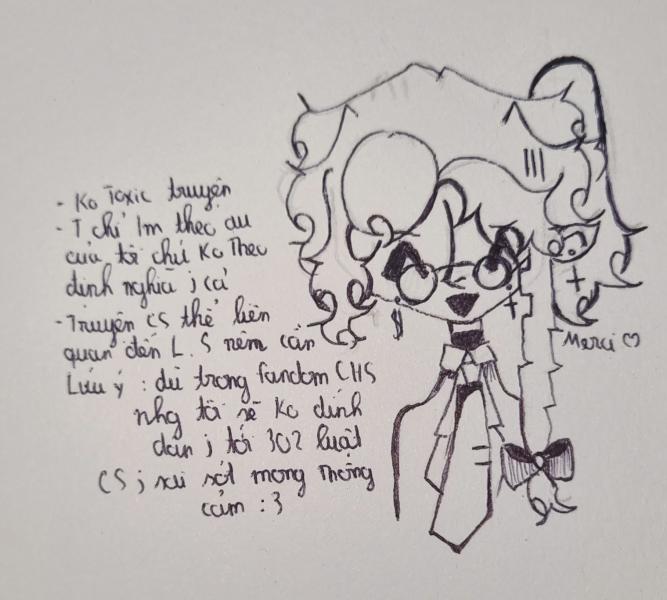 - Ko Toxic truyện
- T chỉ lm theo au
của tôi chứ Ko Theo
định nghĩa j cả
- Truyện CS thể liên
quan đến L.S nêm cân
Lưu ý : dù trong fandom CHS
nhg tôi sẽ Ko dính
dán j tới 302 luật
CS j sai sót mong thông
cảm :3
Merci ♡